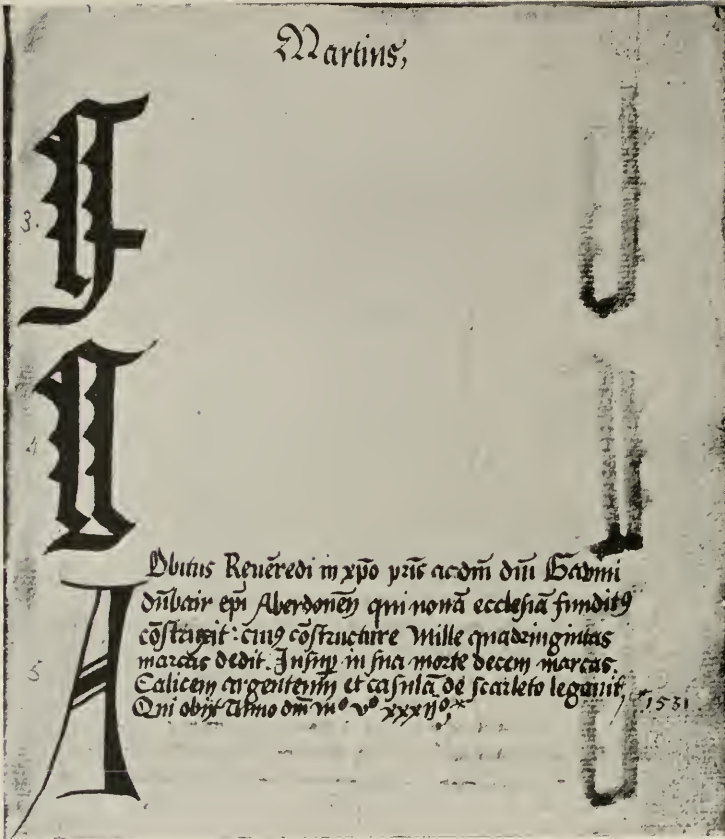 Martius,
3.
f
4
g
5
A
Obitus Reuēredi in xp̄o pris̄ ac dn̄i dn̄i Gawini
dūbair ep̄i Aberdonen̄ qui nouā ecclesiā fundit9
cōstruxit: cui9 cōstructure Mille quadringintas
marcas dedit. Insup̄ in sua morte decem marcas.
Calicem argenteum et casulā de scarleto legauit,
Qui obijt Anno dn̄i mº vº xxxijº,* *1531